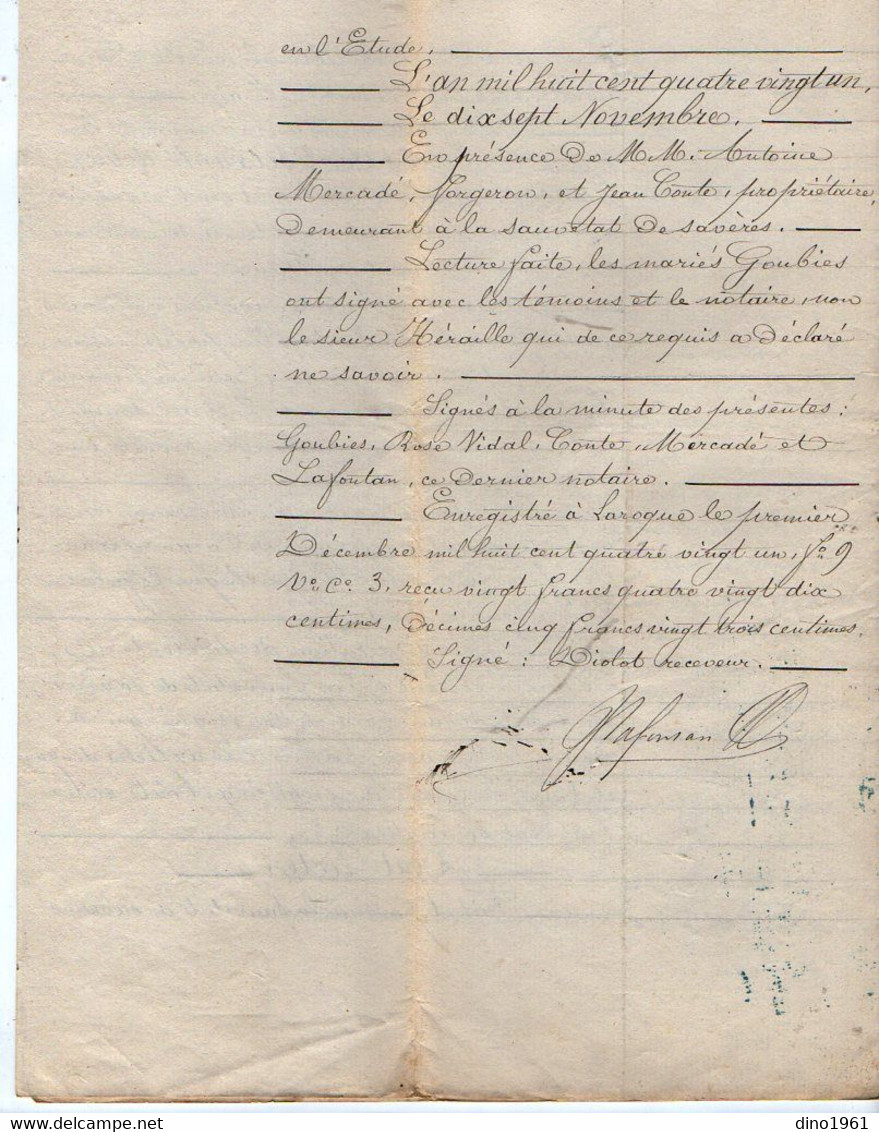 en l'Etude.
L'an mil huit cent quatre vingt un,
Le dix sept Novembre.
En présence De M.M. Antoine
Mercadé, forgeron, et Jean Conte, propriétaire,
Demeurant à la sauvetat De savères.
Lecture faite, les mariés Goubies
ont signé avec les témoins et le notaire, non
le sieur Héraille qui de ce requis a Déclaré
ne savoir.
Signés à la minute des présentes:
Goubies, Rose Vidal, Conte, Mercadé et
Lafontan, ce Dernier notaire.
Enregistré à Laroque le premier
Décembre mil huit cent quatre vingt un, fo. 9
Vo. Co. 3, reçu vingt francs quatre vingt dix
centimes, Décimes cinq francs vingt trois centimes.
Signé: Diolot receveur.
Lafontan
dino1961